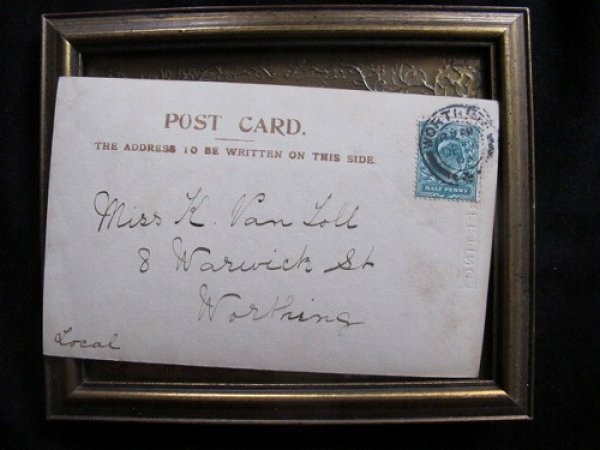 POST CARD.
THE ADDRESS TO BE WRITTEN ON THIS SIDE.
WORTHING
HALF PENNY
Miss K. Van Toll
8 Warwick St
Worthing
Local